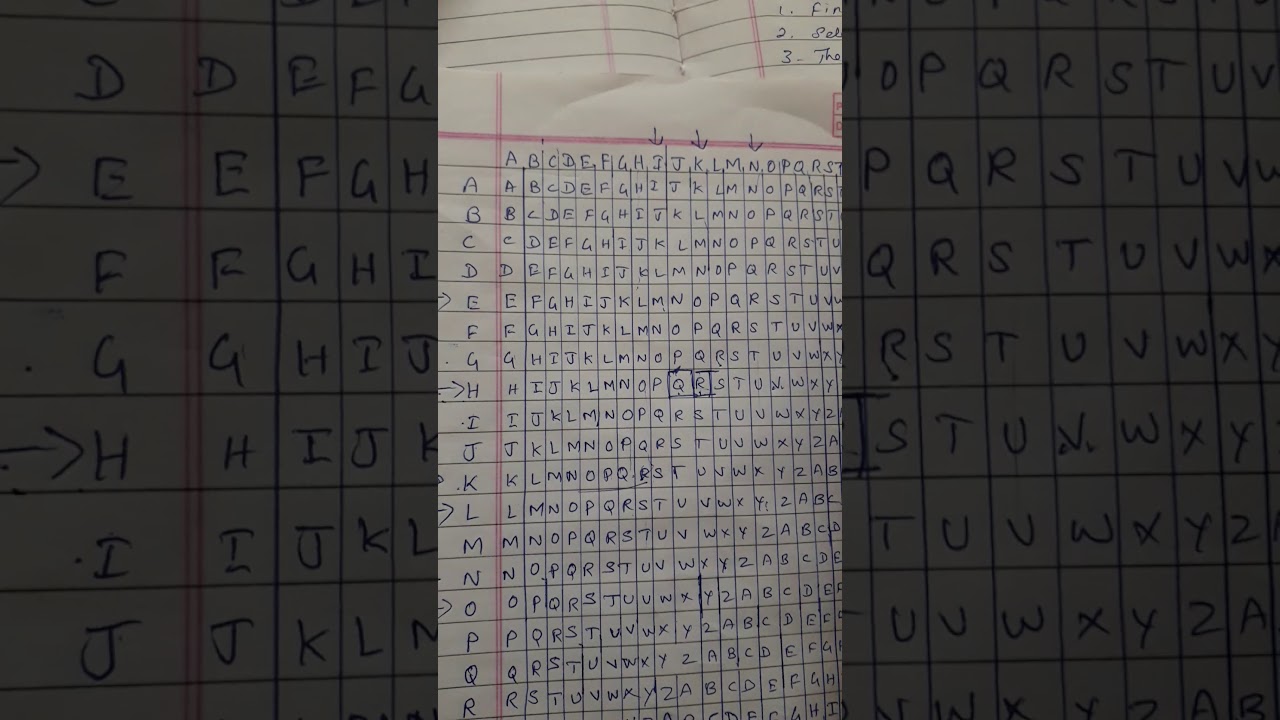 1. Fin
2. Sel
3- The
A B C D E F G H I J K L M N O P Q R S T
A A B C D E F G H I J K L M N O P Q R S T
B B C D E F G H I J K L M N O P Q R S T
C C D E F G H I J K L M N O P Q R S T U
D D E F G H I J K L M N O P Q R S T U V
E E F G H I J K L M N O P Q R S T U V W
F F G H I J K L M N O P Q R S T U V W X
G G H I J K L M N O P Q R S T U V W X Y
H H I J K L M N O P Q R S T U V W X Y
I I J K L M N O P Q R S T U V W X Y Z
J J K L M N O P Q R S T U V W X Y Z A
K K L M N O P Q R S T U V W X Y Z A B
L L M N O P Q R S T U V W X Y Z A B C
M M N O P Q R S T U V W X Y Z A B C D
N N O P Q R S T U V W X Y Z A B C D E
O O P Q R S T U V W X Y Z A B C D E F
P P Q R S T U V W X Y Z A B C D E F
Q Q R S T U V W X Y Z A B C D E F G H
R R S T U V W X Y Z A B C D E F G H